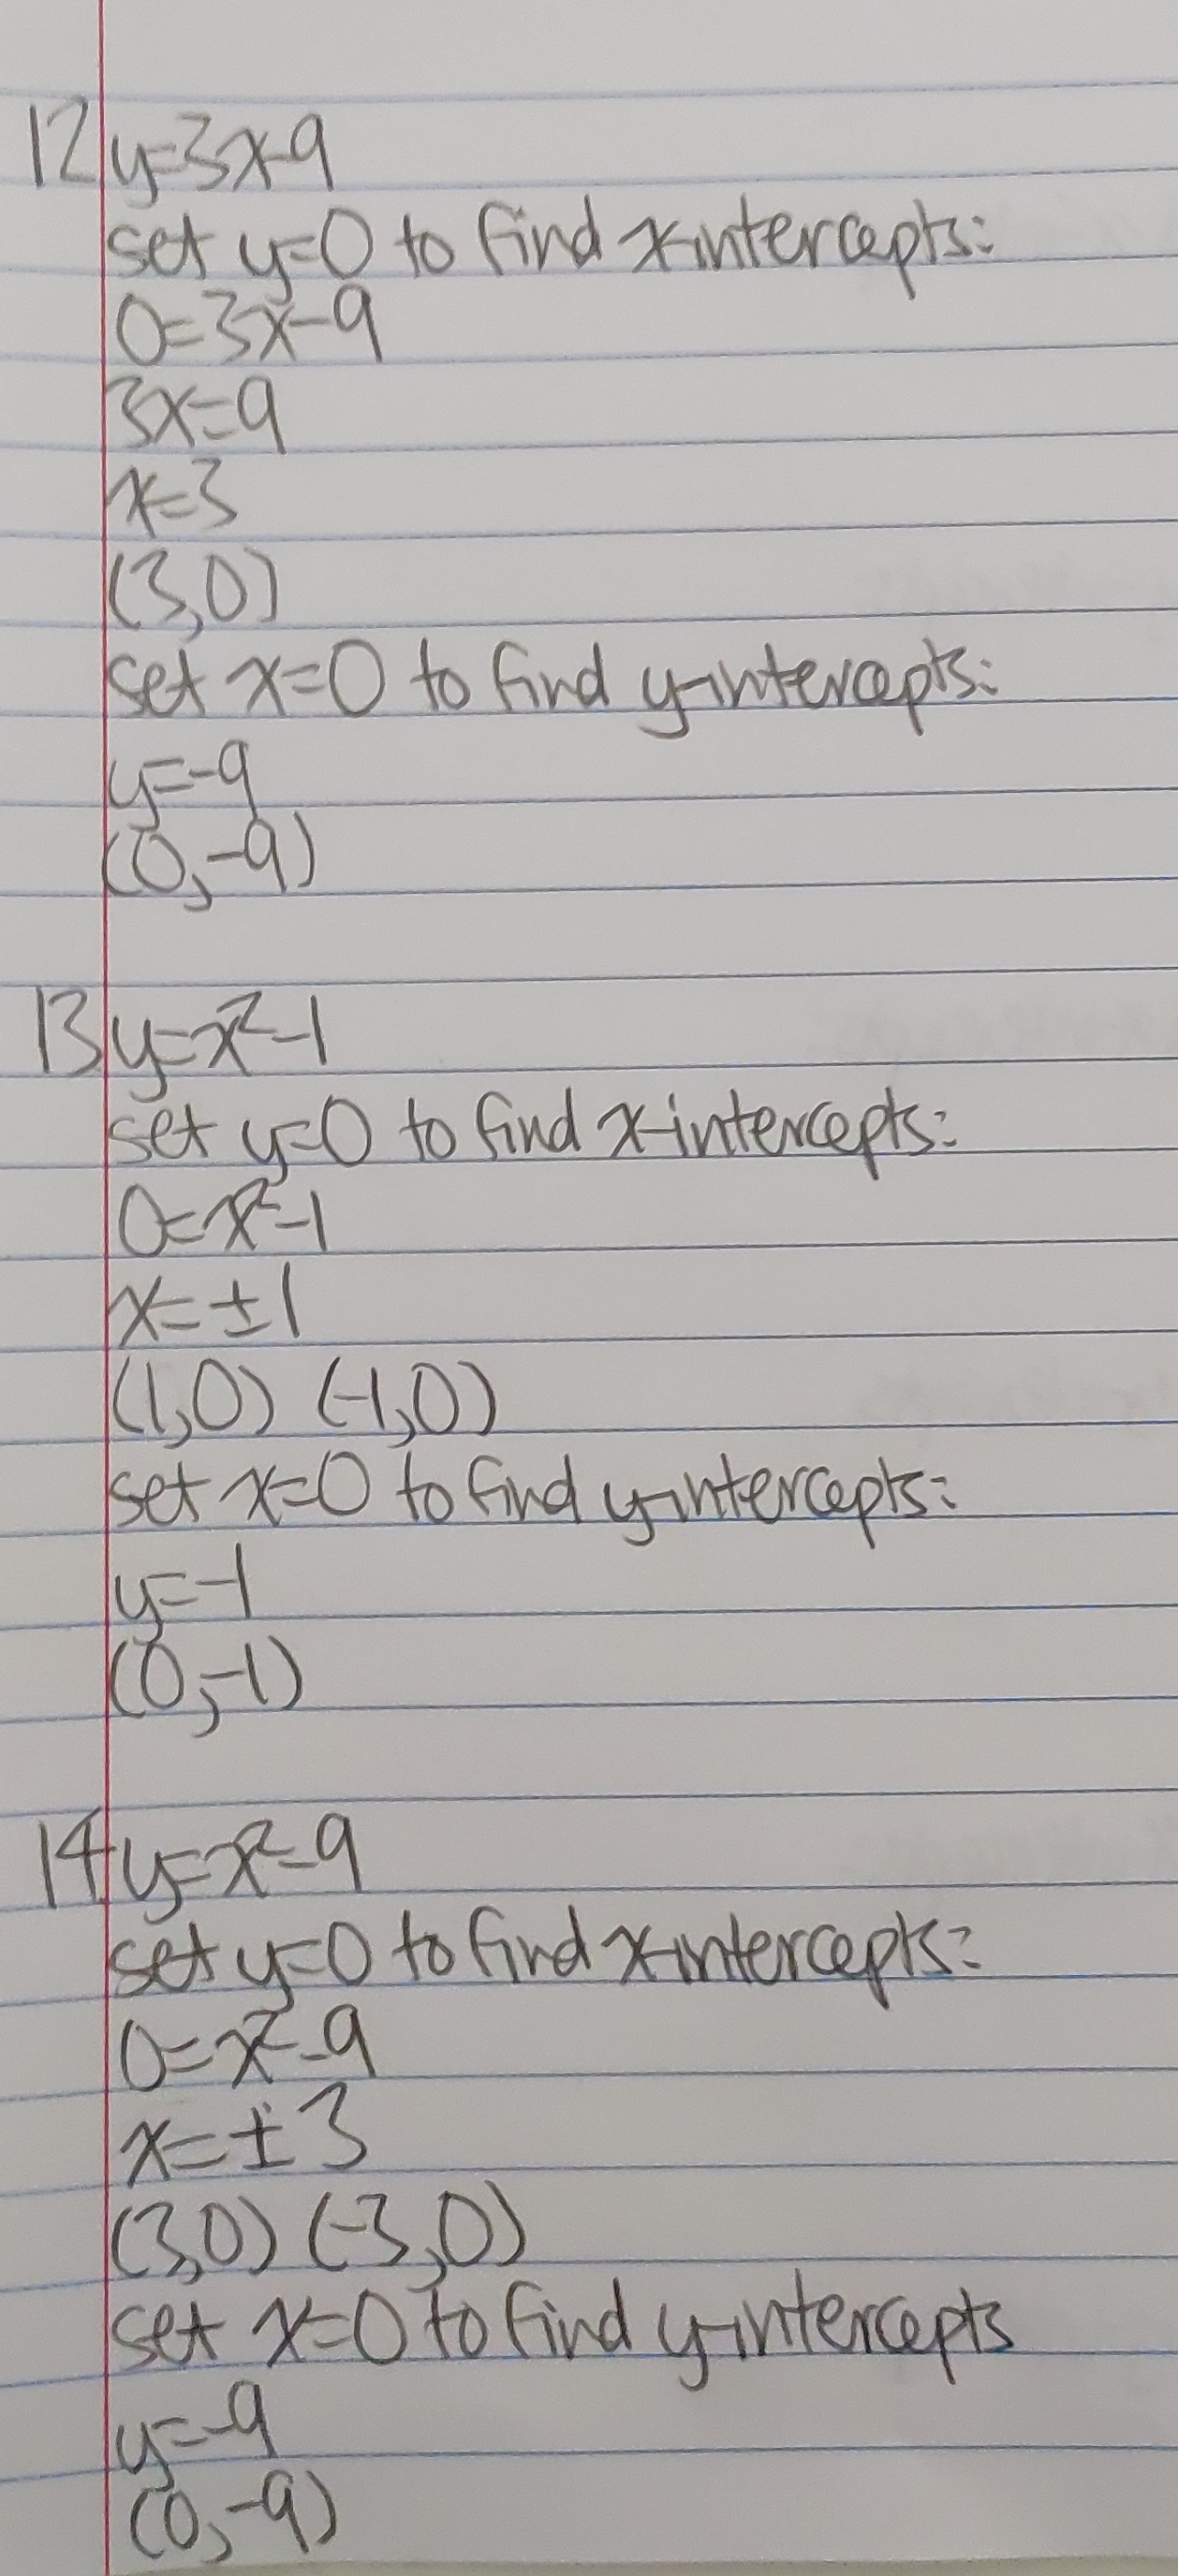 12 y=3x-9
set y=0 to find x-intercepts:
0=3x-9
3x=9
x=3
(3,0)
set x=0 to find y-intercepts:
y=-9
(0,-9)
13 y=x²-1
set y=0 to find x-intercepts:
0=x²-1
x=±1
(1,0) (-1,0)
set x=0 to find y-intercepts:
y=-1
(0,-1)
14 y=x²-9
set y=0 to find x-intercepts:
0=x²-9
x=±3
(3,0) (-3,0)
set x=0 to find y-intercepts
y=-9
(0,-9)